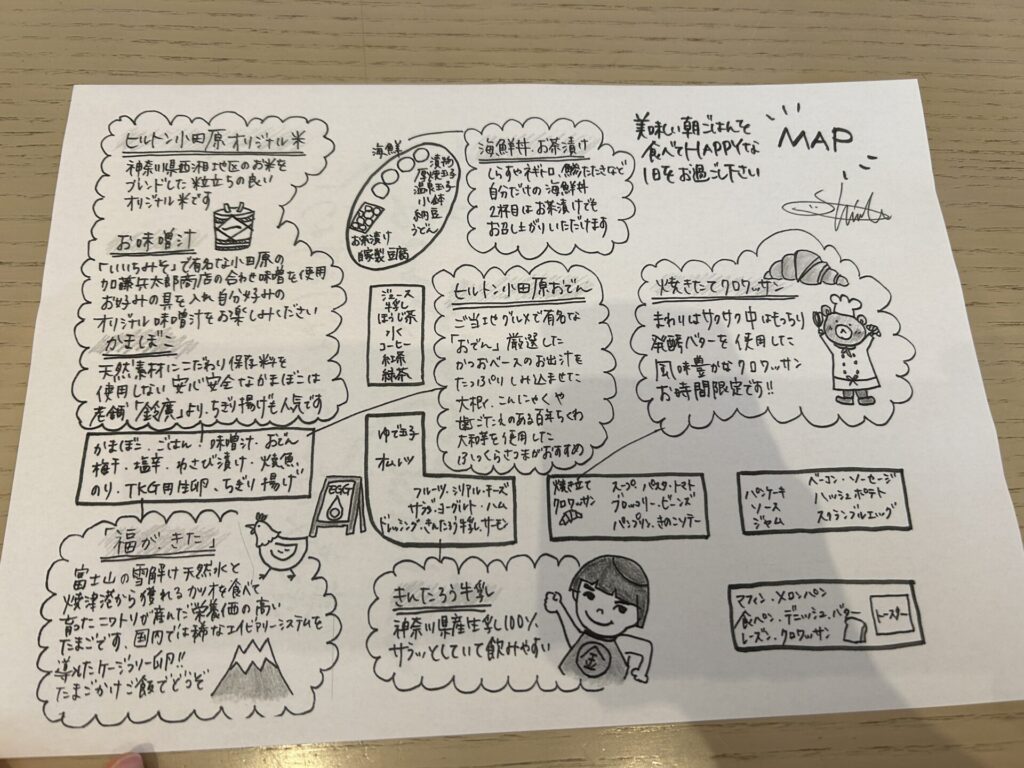 ヒルトン小田原オリジナル米
神奈川県西湘地区のお米を
ブレンドした粒立ちの良い
オリジナル米です
お味噌汁
「いいちみそ」で有名な小田原の
加藤兵太郎商店の合わせ味噌を使用
お好みの具を入れ自分好みの
オリジナル味噌汁をお楽しみください
かまぼこ
天然素材にこだわり保存料を
使用しない安心安全なかまぼこは
老舗「鈴廣」より、ちぎり揚げも人気です
かまぼこ・ごはん・味噌汁・おでん
梅干・塩辛・わさび漬け・焼魚
のり・TKG用生卵・ちぎり揚げ
「福が、きた」
富士山の雪解け天然水と
焼津港から獲れるカツオを食べて
育ったニワトリが産んだ栄養価の高い
たまごです、国内では稀なエイビアリーシステムを
導入したケージフリー卵!!
たまごかけご飯でどうぞ
海鮮
漬物
厚焼玉子
温泉玉子
小鉢
納豆
うどん
お茶漬け
自家製豆腐
海鮮丼・お茶漬け
しらすやネギトロ、鯵たたきなど
自分だけの海鮮丼
2杯目はお茶漬けでも
お召し上がりいただけます
美味しい朝ごはんを
食べてHAPPYな
1日をお過ごし下さい
MAP
ジュース
牛乳
ほうじ茶
水
コーヒー
紅茶
緑茶
ヒルトン小田原おでん
ご当地グルメで有名な
「おでん」厳選した
かつおベースのお出汁を
たっぷりしみ込ませた
大根、こんにゃくや
歯ごたえのある百年ちくわ
大和芋を使用した
ふっくらさつまがおすすめ
焼きたてクロワッサン
まわりはサクサク中はもっちり
発酵バターを使用した
風味豊かなクロワッサン
お時間限定です!!
ゆで玉子
オムレツ
フルーツ・シリアル・チーズ
サラダ・ヨーグルト・ハム
ドレッシング・きんたろう牛乳・サーモン
EGG
焼き立て
クロワッサン
スープ・パスタ・トマト
ブロッコリー・ビーンズ
パンプリン・きのこソテー
パンケーキ
ソース
ジャム
ベーコン・ソーセージ
ハッシュポテト
スクランブルエッグ
きんたろう牛乳
神奈川県産生乳100%
サラッとしていて飲みやすい
金
マフィン・メロンパン
食パン・デニッシュ・バター
レーズン・クロワッサン
トースター